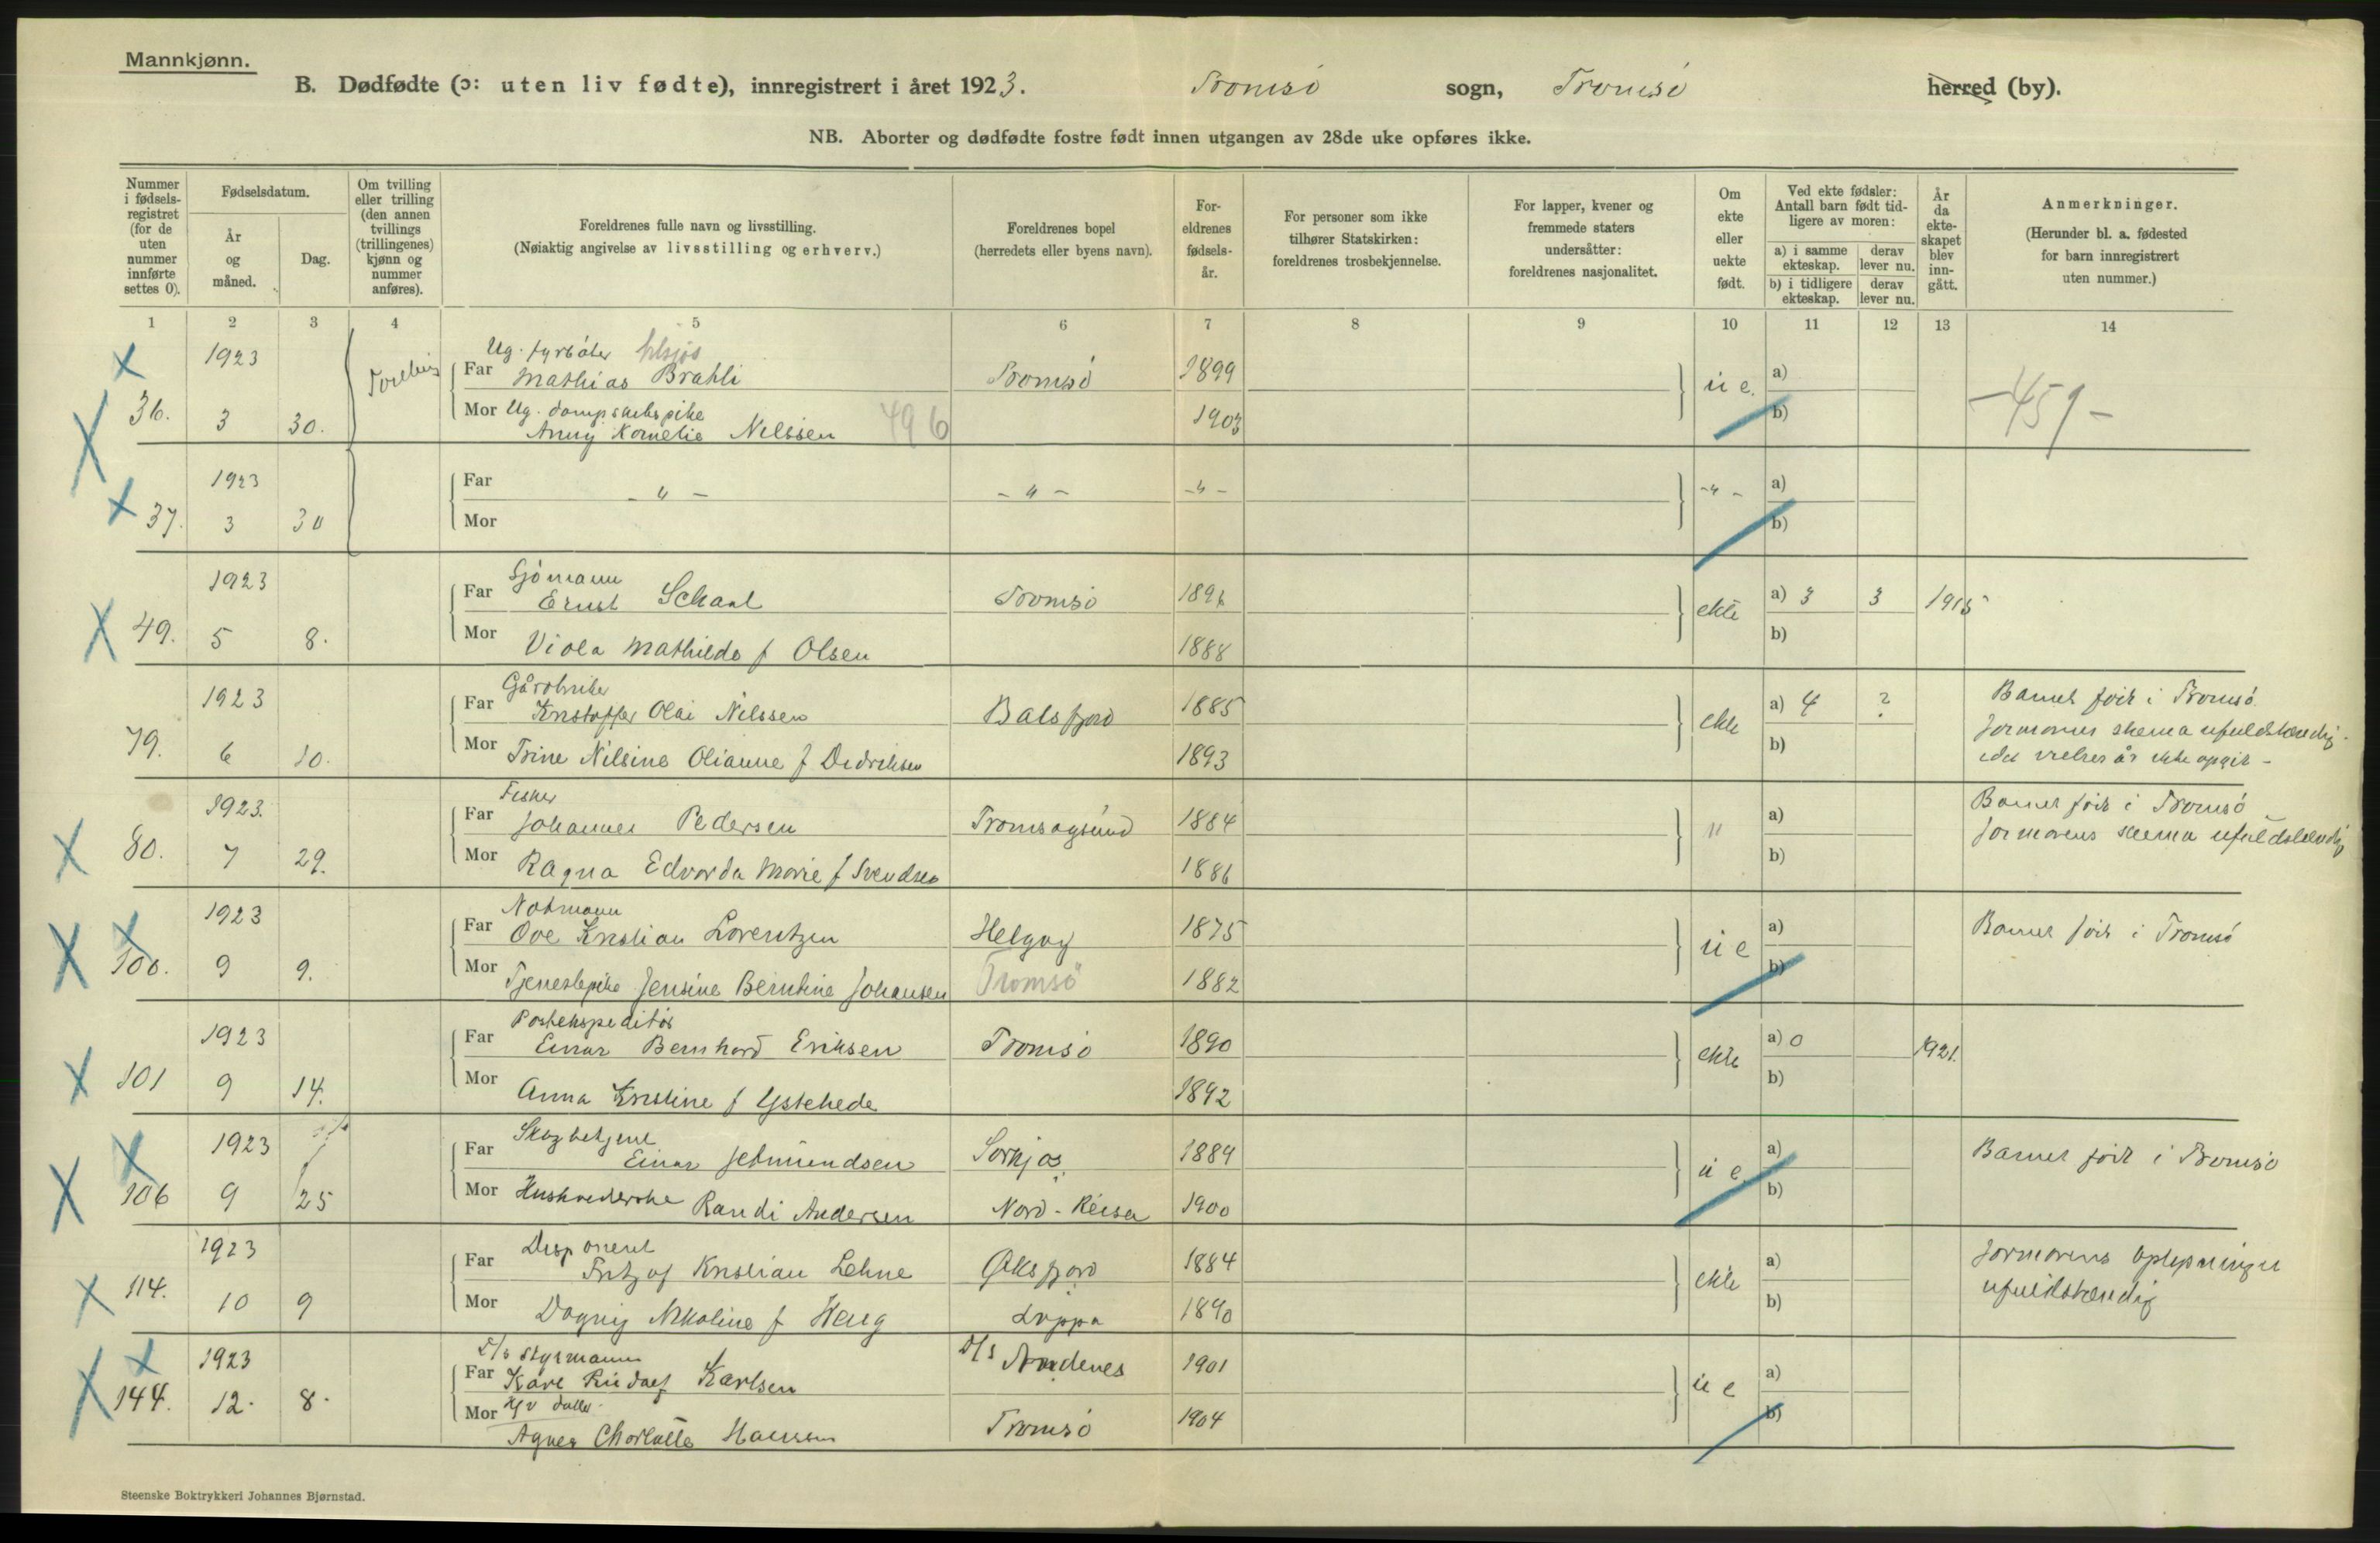 Mannkjønn.
B. Dødfødte (ɔ: uten liv fødte), innregistrert i året 1923. Tromsö sogn, Tromsö herred (by).
NB. Aborter og dødfødte fostre født innen utgangen av 28de uke opføres ikke.
Nummer i fødsels-registret (for de uten nummer innførte settes 0).
Fødselsdatum.
År og måned.
Dag.
Om tvilling eller trilling (den annen tvillings (trillingenes) kjønn og nummer anføres).
Foreldrenes fulle navn og livsstilling.
(Nøiaktig angivelse av livsstilling og erhverv.)
Foreldrenes bopel
(herredets eller byens navn).
For-eldrenes fødsels-år.
For personer som ikke tilhører Statskirken: foreldrenes trosbekjennelse.
For lapper, kvener og fremmede staters undersåtter: foreldrenes nasjonalitet.
Om ekte eller uekte født.
Ved ekte fødsler: Antall barn født tid-ligere av moren:
a) i samme ekteskap.
derav lever nu.
b) i tidligere ekteskap.
derav lever nu.
År da ekte-skapet blev inn-gått.
Anmerkninger.
(Herunder bl. a. fødested for barn innregistrert uten nummer.)
1 2 3 4 5 6 7 8 9 10 11 12 13 14
1923 Ug. fyrböter
Far Mathias Brahli Tromsö 1899 u e. a)
36. 3 30. Mor Ug. 1903 b) -459-
Anny Kornelie Nilssen 496
1923 Far - " - - " - - " - - " - a)
37. 3 30 Mor b)
1923 Sjömann
Far Ernst Schaal Tromsö 1896 ekte a) 3 3 1915
49. 5 8. Mor Viola Mathilde f Olsen 1888 b)
1923 Gårdbruker
Far Kristoffer Olai Nilssen Balsfjord 1885 ekte a) 4 ? Barnet föit i Tromsö.
79. 6 10. Mor Trine Nilsine Olianne f Dedriksen 1893 b) Jormorens skema ufuldstændig
idet vielses år ikke opgit -
1923. Fisker
Far Johannes Pedersen Tromsøysund 1884 " a) Barnet föit i Tromsö
80. 7 29. Mor Ragna Edvarda Marie f Svendsen 1886 b) Jormorens skema ufuldstændig
1923 Notmann
Far Ove Kristian Lorentzen Helgøy 1875 u e a) Barnet föit i Tromsö
100. 9 9. Mor Tjenestepike Jensine Berntine Johansen Tromsö 1882 b)
1923 Postekspeditör
Far Einar Bernhard Eriksen Tromsö 1890 ekte a) 0 1921.
101 9 14. Mor Anna Kristine f 1892 b)
1923 Skogbetjent
Far Einar Sørkjos 1889 u e. a) Barnet föit i Tromsö
106 9 25 Mor Husholderske Randi Andersen Nord-Reisa 1900 b)
1923 Disponent
Far Fritjof Kristian Lehne Øksfjord 1884 ekte a) Jormorens oplysninger
114. 10 9 Mor Dagny Nikoline f Haug Loppa 1890 b) ufuldstændig
1923 styrmann
Far Kåre Karlsen D/S Andenes 1901 u e a)
144. 12. 8. Mor
Agnes Charlotte Hansen Tromsö 1904 b)
Steenske Boktrykkeri Johannes Bjørnstad.